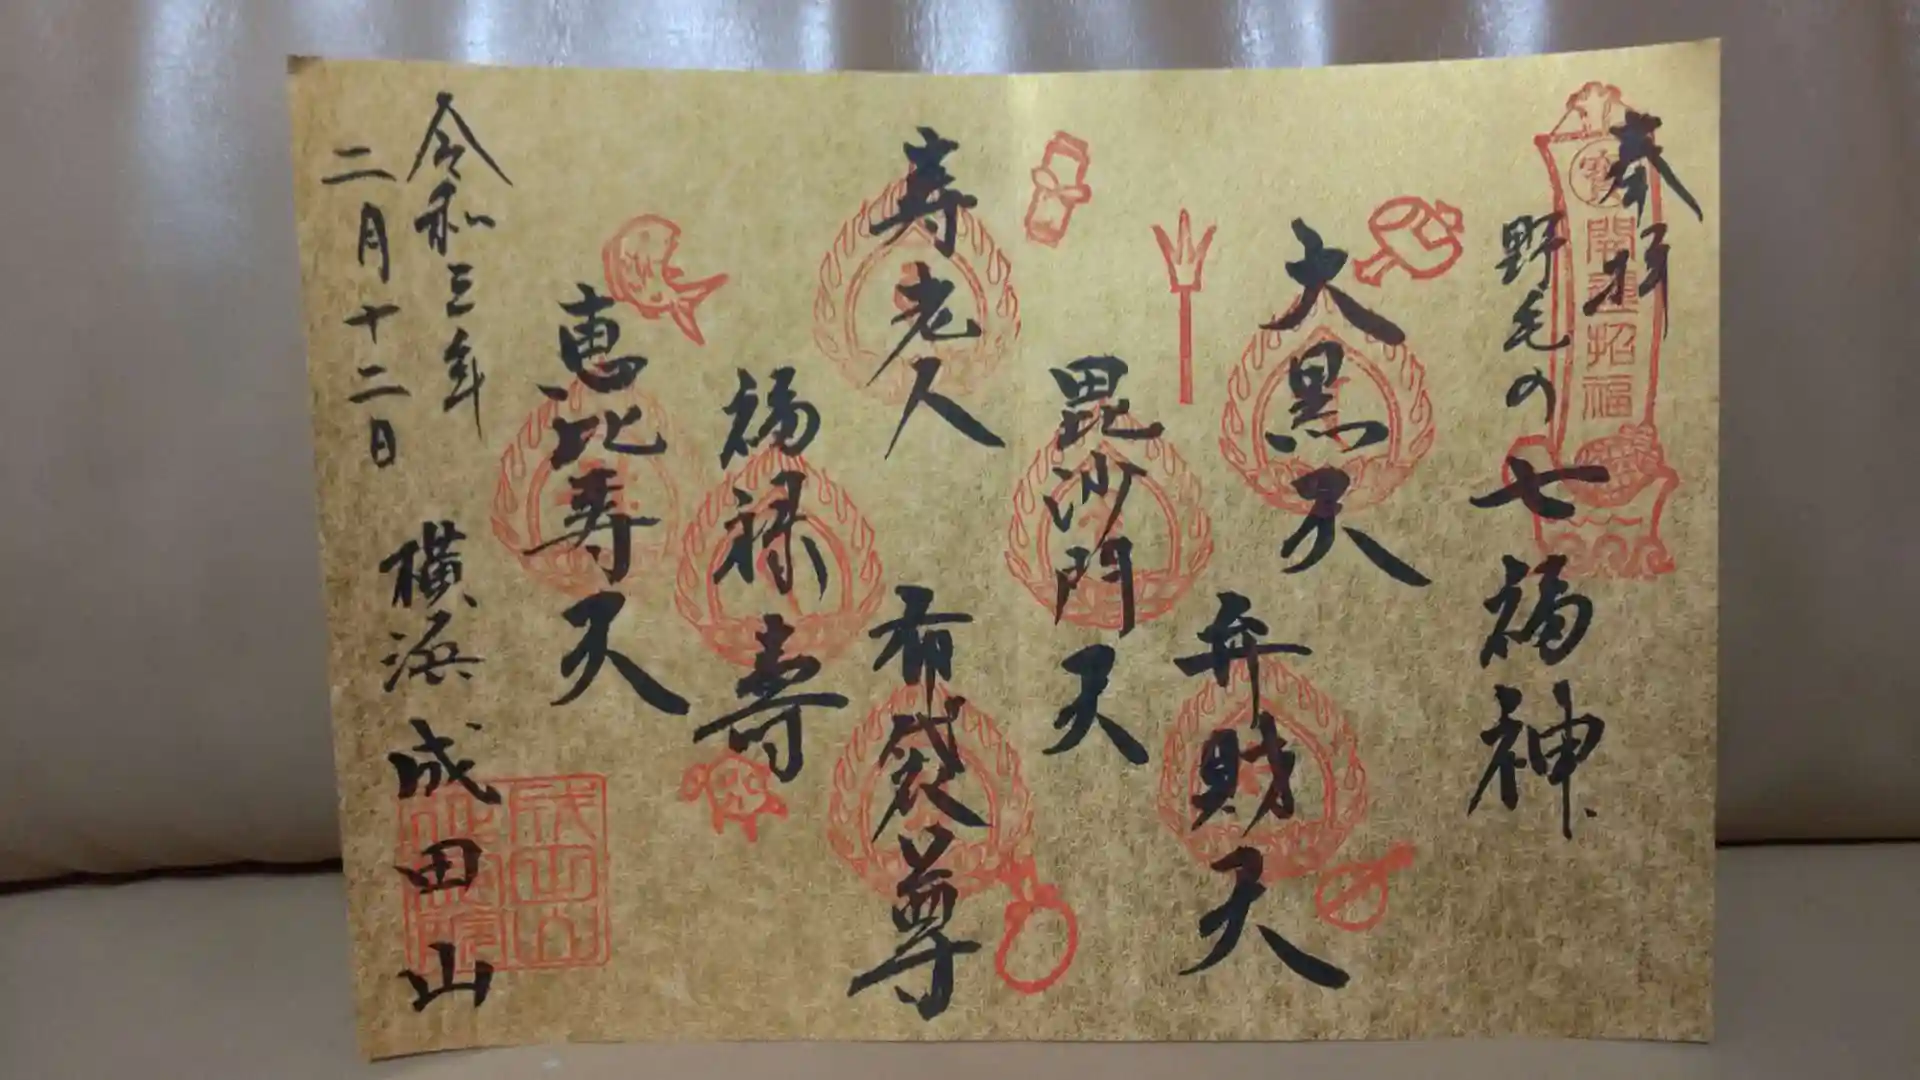 奉拝
寶
開運招福
野毛の七福神
大黒天
弁財天
毘沙門天
寿老人
布袋尊
福禄寿
恵比寿天
令和三年
二月十二日
横浜成田山